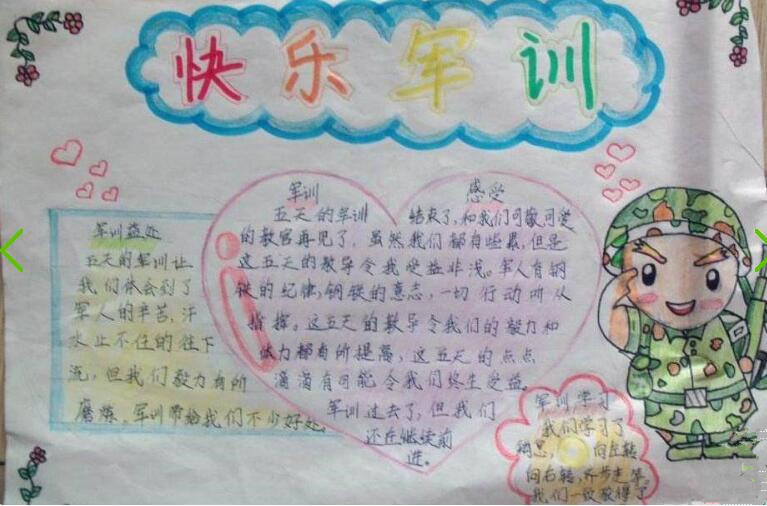 快乐军训
军训益处
五天的军训让
我们体会到了
军人的辛苦,汗
水止不住的往下
流,但我们毅力有所
磨炼。军训带给我们不少好处。
军训 感受
五天的军训 结束了,和我们可敬可爱
的教官再见了,虽然我们都有些累,但是
这五天的教导令我受益非浅。军人有钢
铁的纪律,钢铁的意志,一切行动听从
指挥。这五天的教导令我们的毅力和
体力都有所提高,这五天的点点
滴滴有可能令我们终生受益。
军训过去了,但我们
还在继续前
进。
军训学习
我们学习了
稍息, 向左转
向右转,齐步走等。
我们一致获得了